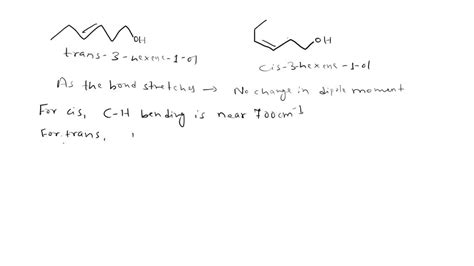 OH
OH
trans-3-hexene-1-ol
cis-3-hexene-1-ol
As the bond stretches → No change in dipole moment
For cis, C-H bending is near 700cm⁻¹
For trans,